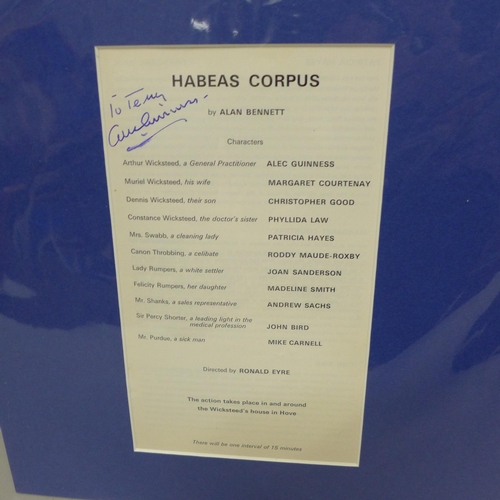 HABEAS CORPUS
To Terry
Alec Guinness
by ALAN BENNETT
Characters
Arthur Wicksteed, a General Practitioner ALEC GUINNESS
Muriel Wicksteed, his wife MARGARET COURTENAY
Dennis Wicksteed, their son CHRISTOPHER GOOD
Constance Wicksteed, the doctor's sister PHYLLIDA LAW
Mrs. Swabb, a cleaning lady PATRICIA HAYES
Canon Throbbing, a celibate RODDY MAUDE-ROXBY
Lady Rumpers, a white settler JOAN SANDERSON
Felicity Rumpers, her daughter MADELINE SMITH
Mr. Shanks, a sales representative ANDREW SACHS
Sir Percy Shorter, a leading light in the
medical profession JOHN BIRD
Mr. Purdue, a sick man MIKE CARNELL
Directed by RONALD EYRE
The action takes place in and around
the Wicksteed's house in Hove
There will be one interval of 15 minutes